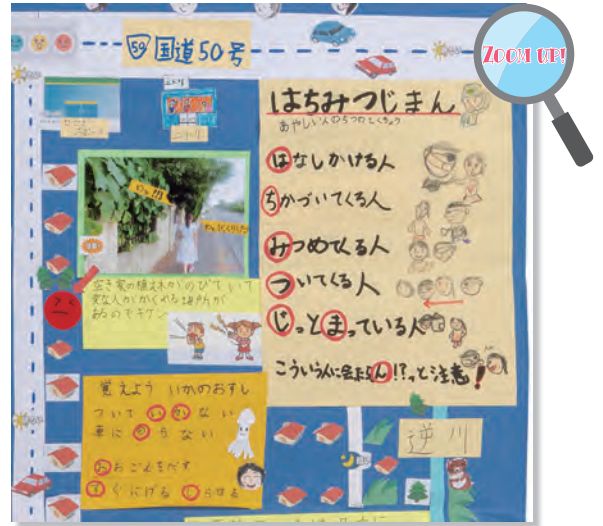 ZOOM UP!
50 国道50号
はちみつじまん
あやしい人の5つのとくちょう
はなしかける人
ちかづいてくる人
みつめてくる人
ついてくる人
じっとまっている人
こういう人に会ったらん!?っと注意!
空き家の植え木がのびていて
変な人がかくれる場所が
あるのでキケン
覚えよう いかのおすし
ついていかない
車にのらない
おおごえをだす
すぐにげる しらせる
逆川